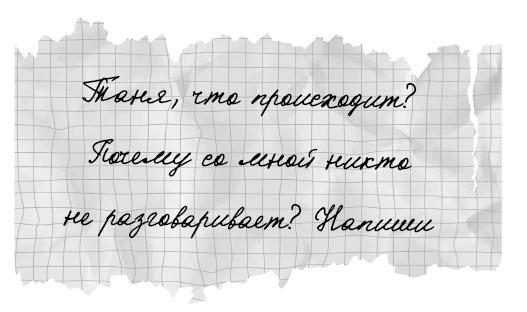 Таня, что происходит?
Почему со мной никто
не разговаривает? Напиши